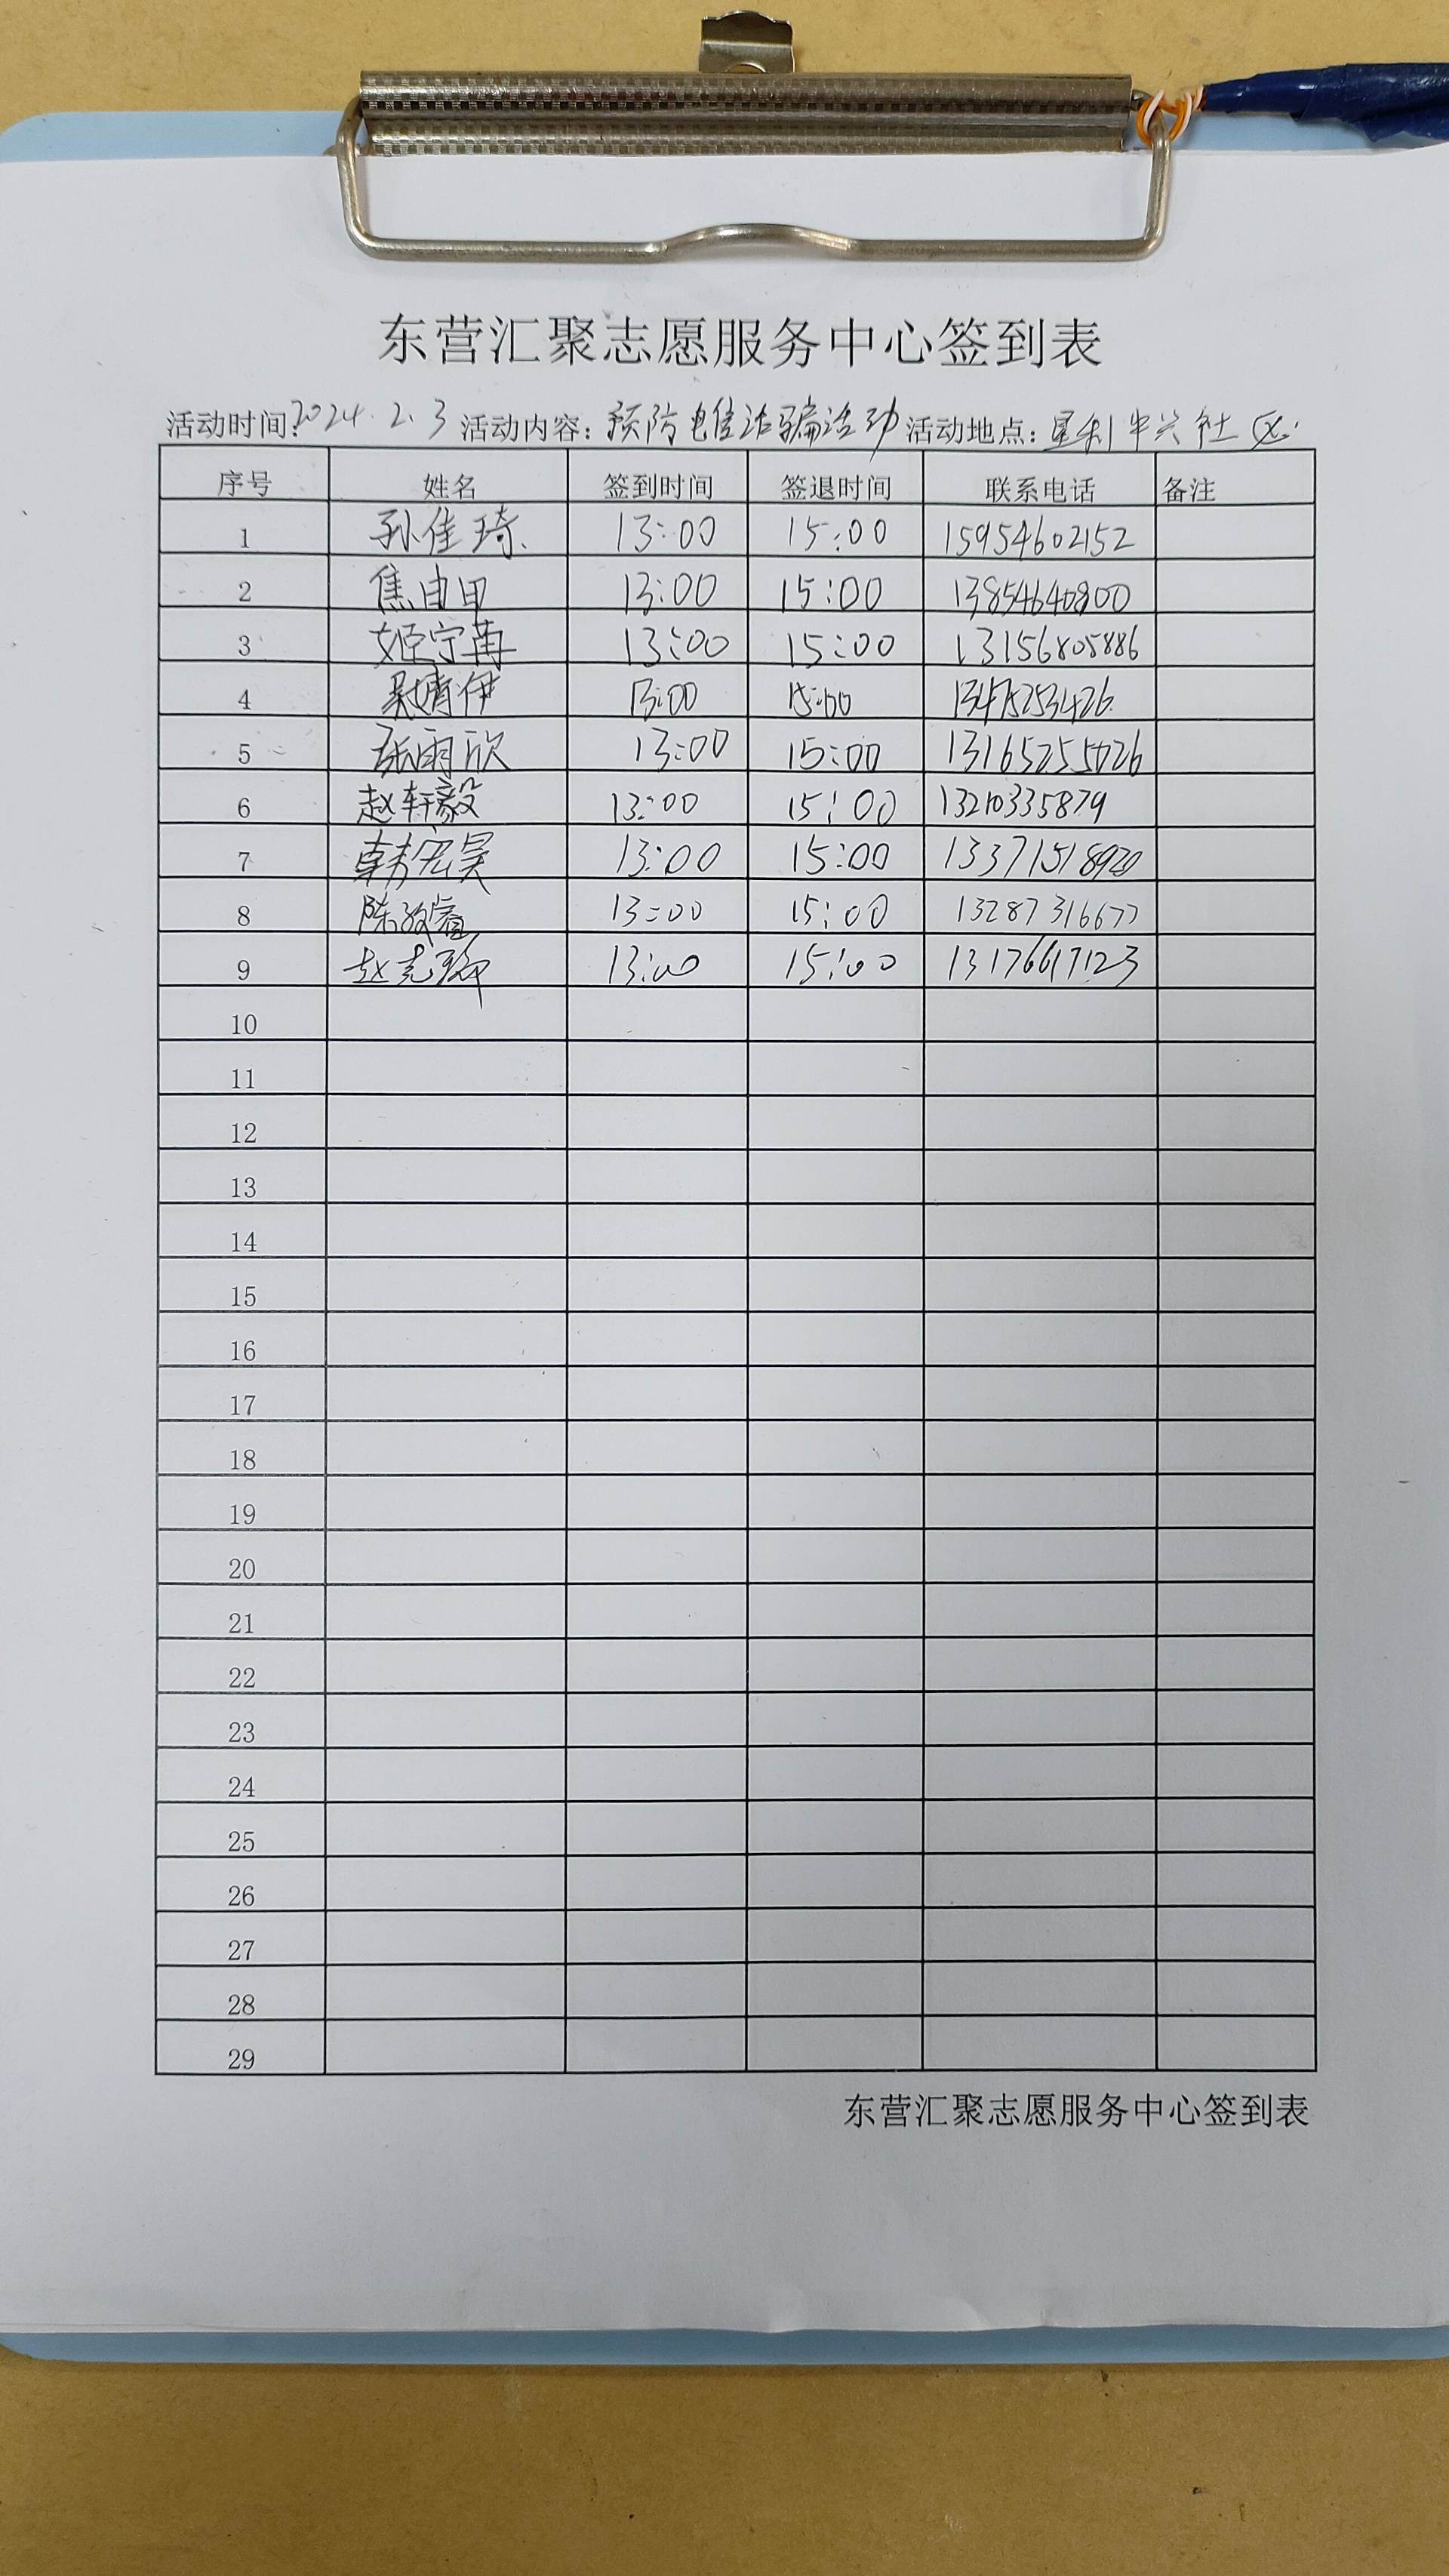 东营汇聚志愿服务中心签到表
活动时间:2024.2.3 活动内容:预防电信诈骗活动 活动地点:垦利中兴社区
序号 姓名 签到时间 签退时间 联系电话 备注
1 孙佳琦 13:00 15:00 15954602152
2 焦由甲 13:00 15:00 13854640800
3 姬宁苒 13:00 15:00 13156805886
4 13:00 15:00 13475253426
5 张雨欣 13:00 15:00 13165255026
6 赵轩毅 13:00 15:00 13210335879
7 韩宏昊 13:00 15:00 13371518920
8 13:00 15:00 13287316677
9 13:00 15:00 13176617123
10
11
12
13
14
15
16
17
18
19
20
21
22
23
24
25
26
27
28
29
东营汇聚志愿服务中心签到表